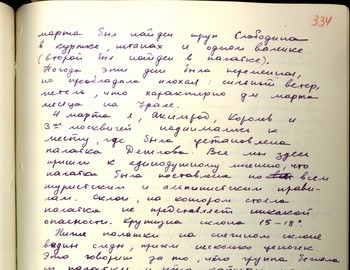 334
марта был найден труп Слободина
в куртке, штанах и одном валенке
(второй был найден в палатке).
Погода эти дни была переменная,
но преобладала плохая: сильный ветер,
метель, что характерно для марта
месяца на Урале.
4 марта я, Аксельрод, Королев и
3ое москвичей поднимались к
месту, где была установлена
палатка Дятлова. Все мы здесь
пришли к единодушному мнению, что
палатка была поставлена по всем
туристским и альпинистским прави-
лам. Склон, на котором стояла
палатка не представляет никакой
опасности. Крутизна склона 15-18°.
Ниже палатки на снежном склоне
видны следы, прямо несколько цепочек.
Это говорит за то, что группа бежала
от палатки и